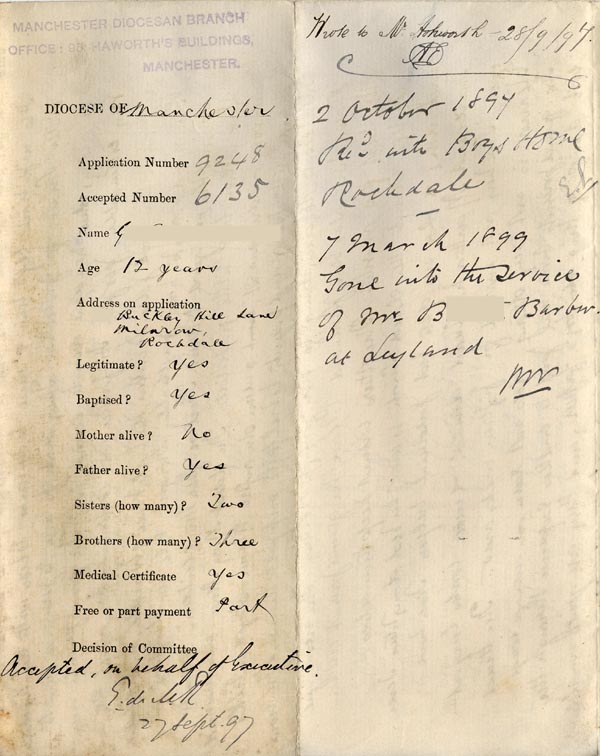 MANCHESTER DIOCESAN BRANCH
OFFICE: 98 HAWORTH'S BUILDINGS,
MANCHESTER.
DIOCESE OF Manchester
Application Number 9248
Accepted Number 6135
Name G
Age 12 years
Address on application
Buckley Hill Lane
Milnrow,
Rochdale
Legitimate? Yes
Baptised? Yes
Mother alive? No
Father alive? Yes
Sisters (how many)? Two
Brothers (how many)? Three
Medical Certificate Yes
Free or part payment Part
Decision of Committee
Accepted, on behalf of Executive.
27 Sept. 97
Wrote to Mr Ashworth - 28/9/97.
2 October 1897
Recd into Boys Home
Rochdale
7 March 1899
Gone into the service
of Mr B Barber.
at Leyland